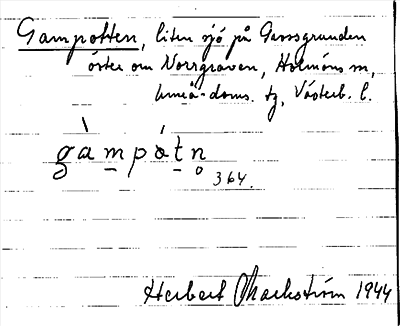 Gampotten, liten sjö på Grossgrunden
öster om Norrgraven, Holmöns sn,
Umeå doms. tg, Västerb. l.
gàmpòtn
364.
Herbert Markström 1944